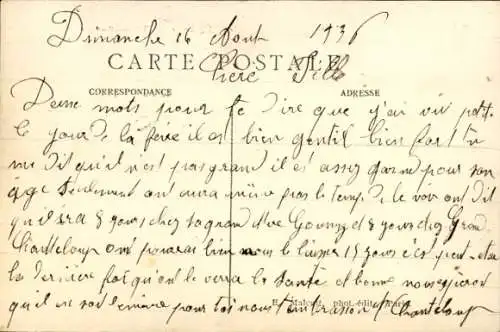 Dimanche 16 Aout 1936
CARTE POSTALE
Chère Fille
CORRESPONDANCE ADRESSE
Deux mots pour te dire que j'ai vu petit
le jour de la fére il es bien gentil bien fort tu
me dit qu'il n'es pas grand il es assez grand pour son
âge seulement on aura même pas le temps de le voir on dit
qu'il sra 8 jours chez sa grand et 8 jours chez Grand
Chanteloup ont pourai bien nous le laisser 15 jours ici peut-etre
la dernière fois qu'on le verra la Santé et bonne nous espérons
qu'il en soit même pour toi nous t'embrassons Chanteloup
phot. édit. Paris